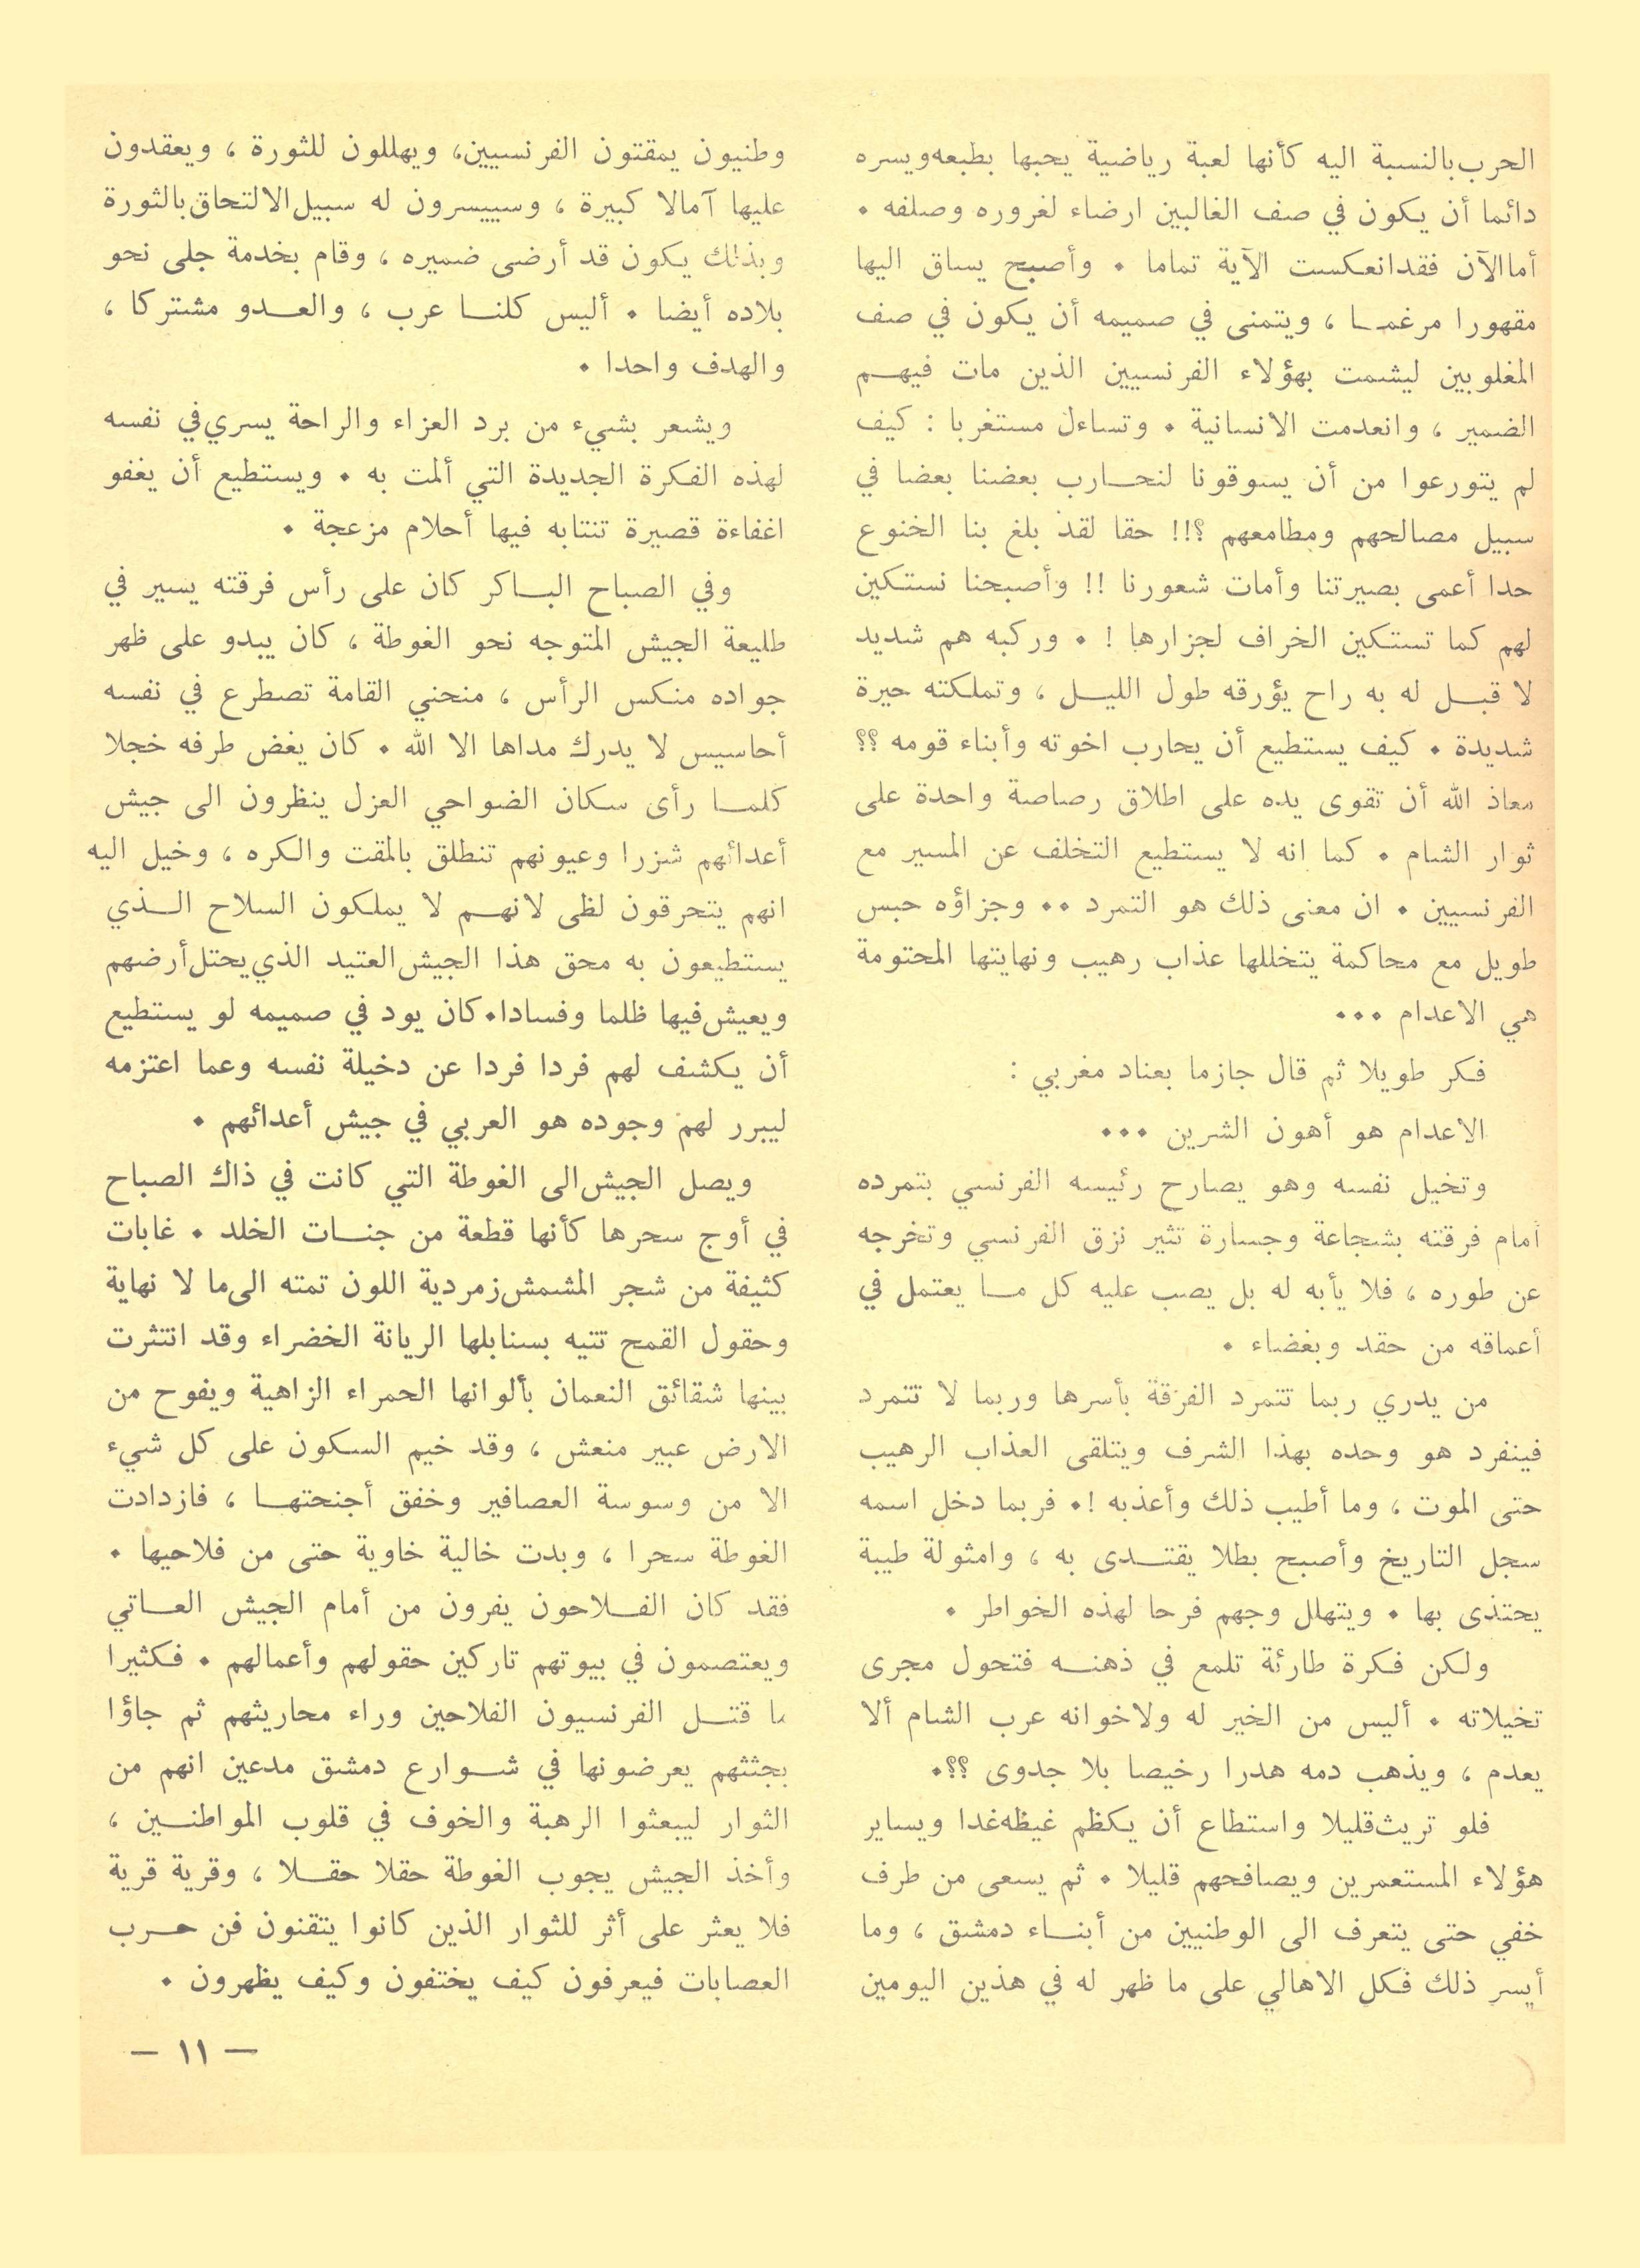 الحرب بالنسبة اليه كأنها لعبة رياضية يحبها بطبعه ويسره
دائما أن يكون في صف الغالبين ارضاء لغروره وصلفه .
أما الآن فقد انعكست الآية تماما . وأصبح يساق اليها
مقهورا مرغما ، ويتمنى في صميمه أن يكون في صف
المغلوبين ليشمت بهؤلاء الفرنسيين الذين مات فيهم
الضمير ، وانعدمت الانسانية . وتساءل مستغربا : كيف
لم يتورعوا من أن يسوقونا لنحارب بعضنا بعضا في
سبيل مصالحهم ومطامعهم ؟!! حقا لقد بلغ بنا الخنوع
حدا أعمى بصيرتنا وأمات شعورنا !! وأصبحنا نستكين
لهم كما تستكين الخراف لجزارها ! . وركبه هم شديد
لا قبل له به راح يؤرقه طول الليل ، وتملكته حيرة
شديدة . كيف يستطيع أن يحارب اخوته وأبناء قومه ؟؟
معاذ الله أن تقوى يده على اطلاق رصاصة واحدة على
ثوار الشام . كما انه لا يستطيع التخلف عن المسير مع
الفرنسيين . ان معنى ذلك هو التمرد .. وجزاؤه حبس
طويل مع محاكمة يتخللها عذاب رهيب ونهايتها المحتومة
هي الاعدام ...
فكر طويلا ثم قال جازما بعناد مغربي :
الاعدام هو أهون الشرين ...
وتخيل نفسه وهو يصارح رئيسه الفرنسي بتمرده
أمام فرقته بشجاعة وجسارة تثير نزق الفرنسي وتخرجه
عن طوره ، فلا يأبه له بل يصب عليه كل ما يعتمل في
أعماقه من حقد وبغضاء .
من يدري ربما تتمرد الفرقة بأسرها وربما لا تتمرد
فينفرد هو وحده بهذا الشرف ويتلقى العذاب الرهيب
حتى الموت ، وما أطيب ذلك وأعذبه !. فربما دخل اسمه
سجل التاريخ وأصبح بطلا يقتدى به ، وامثولة طيبة
يحتذى بها . ويتهلل وجهم فرحا لهذه الخواطر .
ولكن فكرة طارئة تلمع في ذهنه فتحول مجرى
تخيلاته . أليس من الخير له ولاخوانه عرب الشام ألا
يعدم ، ويذهب دمه هدرا رخيصا بلا جدوى ؟؟.
فلو تريث قليلا واستطاع أن يكظم غيظه غدا ويساير
هؤلاء المستعمرين ويصافحهم قليلا . ثم يسعى من طرف
خفي حتى يتعرف الى الوطنيين من أبناء دمشق ، وما
أيسر ذلك فكل الاهالي على ما ظهر له في هذين اليومين
وطنيون يمقتون الفرنسيين، ويهللون للثورة ، ويعقدون
عليها آمالا كبيرة ، وسييسرون له سبيل الالتحاق بالثورة
وبذلك يكون قد أرضى ضميره ، وقام بخدمة جلى نحو
بلاده أيضا . أليس كلنا عرب ، والعدو مشتركا ،
والهدف واحدا .
ويشعر بشيء من برد العزاء والراحة يسري في نفسه
لهذه الفكرة الجديدة التي ألمت به . ويستطيع أن يغفو
اغفاءة قصيرة تنتابه فيها أحلام مزعجة .
وفي الصباح الباكر كان على رأس فرقته يسير في
طليعة الجيش المتوجه نحو الغوطة ، كان يبدو على ظهر
جواده منكس الرأس ، منحني القامة تصطرع في نفسه
أحاسيس لا يدرك مداها الا الله . كان يغض طرفه خجلا
كلما رأى سكان الضواحي العزل ينظرون الى جيش
أعدائهم شزرا وعيونهم تنطلق بالمقت والكره ، وخيل اليه
انهم يتحرقون لظى لانهم لا يملكون السلاح الذي
يستطيعون به محق هذا الجيش العتيد الذي يحتل أرضهم
ويعيش فيها ظلما وفسادا. كان يود في صميمه لو يستطيع
أن يكشف لهم فردا فردا عن دخيلة نفسه وعما اعتزمه
ليبرر لهم وجوده هو العربي في جيش أعدائهم .
ويصل الجيش الى الغوطة التي كانت في ذاك الصباح
في أوج سحرها كأنها قطعة من جنات الخلد . غابات
كثيفة من شجر المشمش زمردية اللون تمته الى ما لا نهاية
وحقول القمح تتيه بسنابلها الريانة الخضراء وقد انتثرت
بينها شقائق النعمان بألوانها الحمراء الزاهية ويفوح من
الارض عبير منعش ، وقد خيم السكون على كل شيء
الا من وسوسة العصافير وخفق أجنحتها ، فازدادت
الغوطة سحرا ، وبدت خالية خاوية حتى من فلاحيها .
فقد كان الفلاحون يفرون من أمام الجيش العاتي
ويعتصمون في بيوتهم تاركين حقولهم وأعمالهم . فكثيرا
ما قتل الفرنسيون الفلاحين وراء محاريثهم ثم جاؤا
بجثثهم يعرضونها في شوارع دمشق مدعين انهم من
الثوار ليبعثوا الرهبة والخوف في قلوب المواطنين ،
وأخذ الجيش يجوب الغوطة حقلا حقلا ، وقرية قرية
فلا يعثر على أثر للثوار الذين كانوا يتقنون فن حرب
العصابات فيعرفون كيف يختفون وكيف يظهرون .
— ١١ —